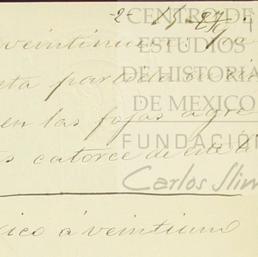 -2-
veintinueve
eta partida se
en las fojas agre
s catorce de este
ico á veintiun
CENTRO DE
ESTUDIOS
DE HISTORIA
DE MEXICO
FUNDACIÓN
Carlos Slim